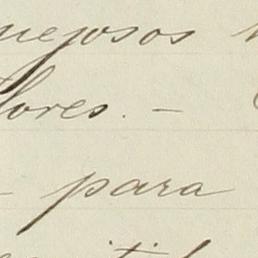 uejosos
lores. —
— para